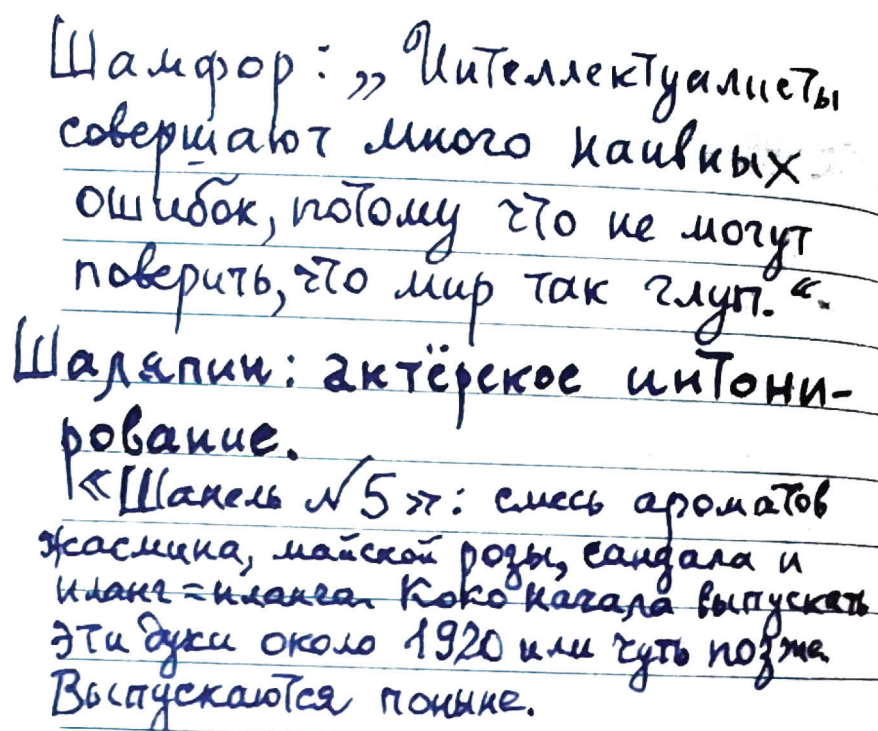 Шамфор: „Интеллектуалисты
совершают много наивных
ошибок, потому что не могут
поверить, что мир так глуп.“
Шаляпин: актёрское интони-
рование.
«Шанель №5»: смесь ароматов
жасмина, майской розы, сандала и
иланг=иланга. Коко начала выпускать
эти духи около 1920 или чуть позже.
Выпускаются поныне.